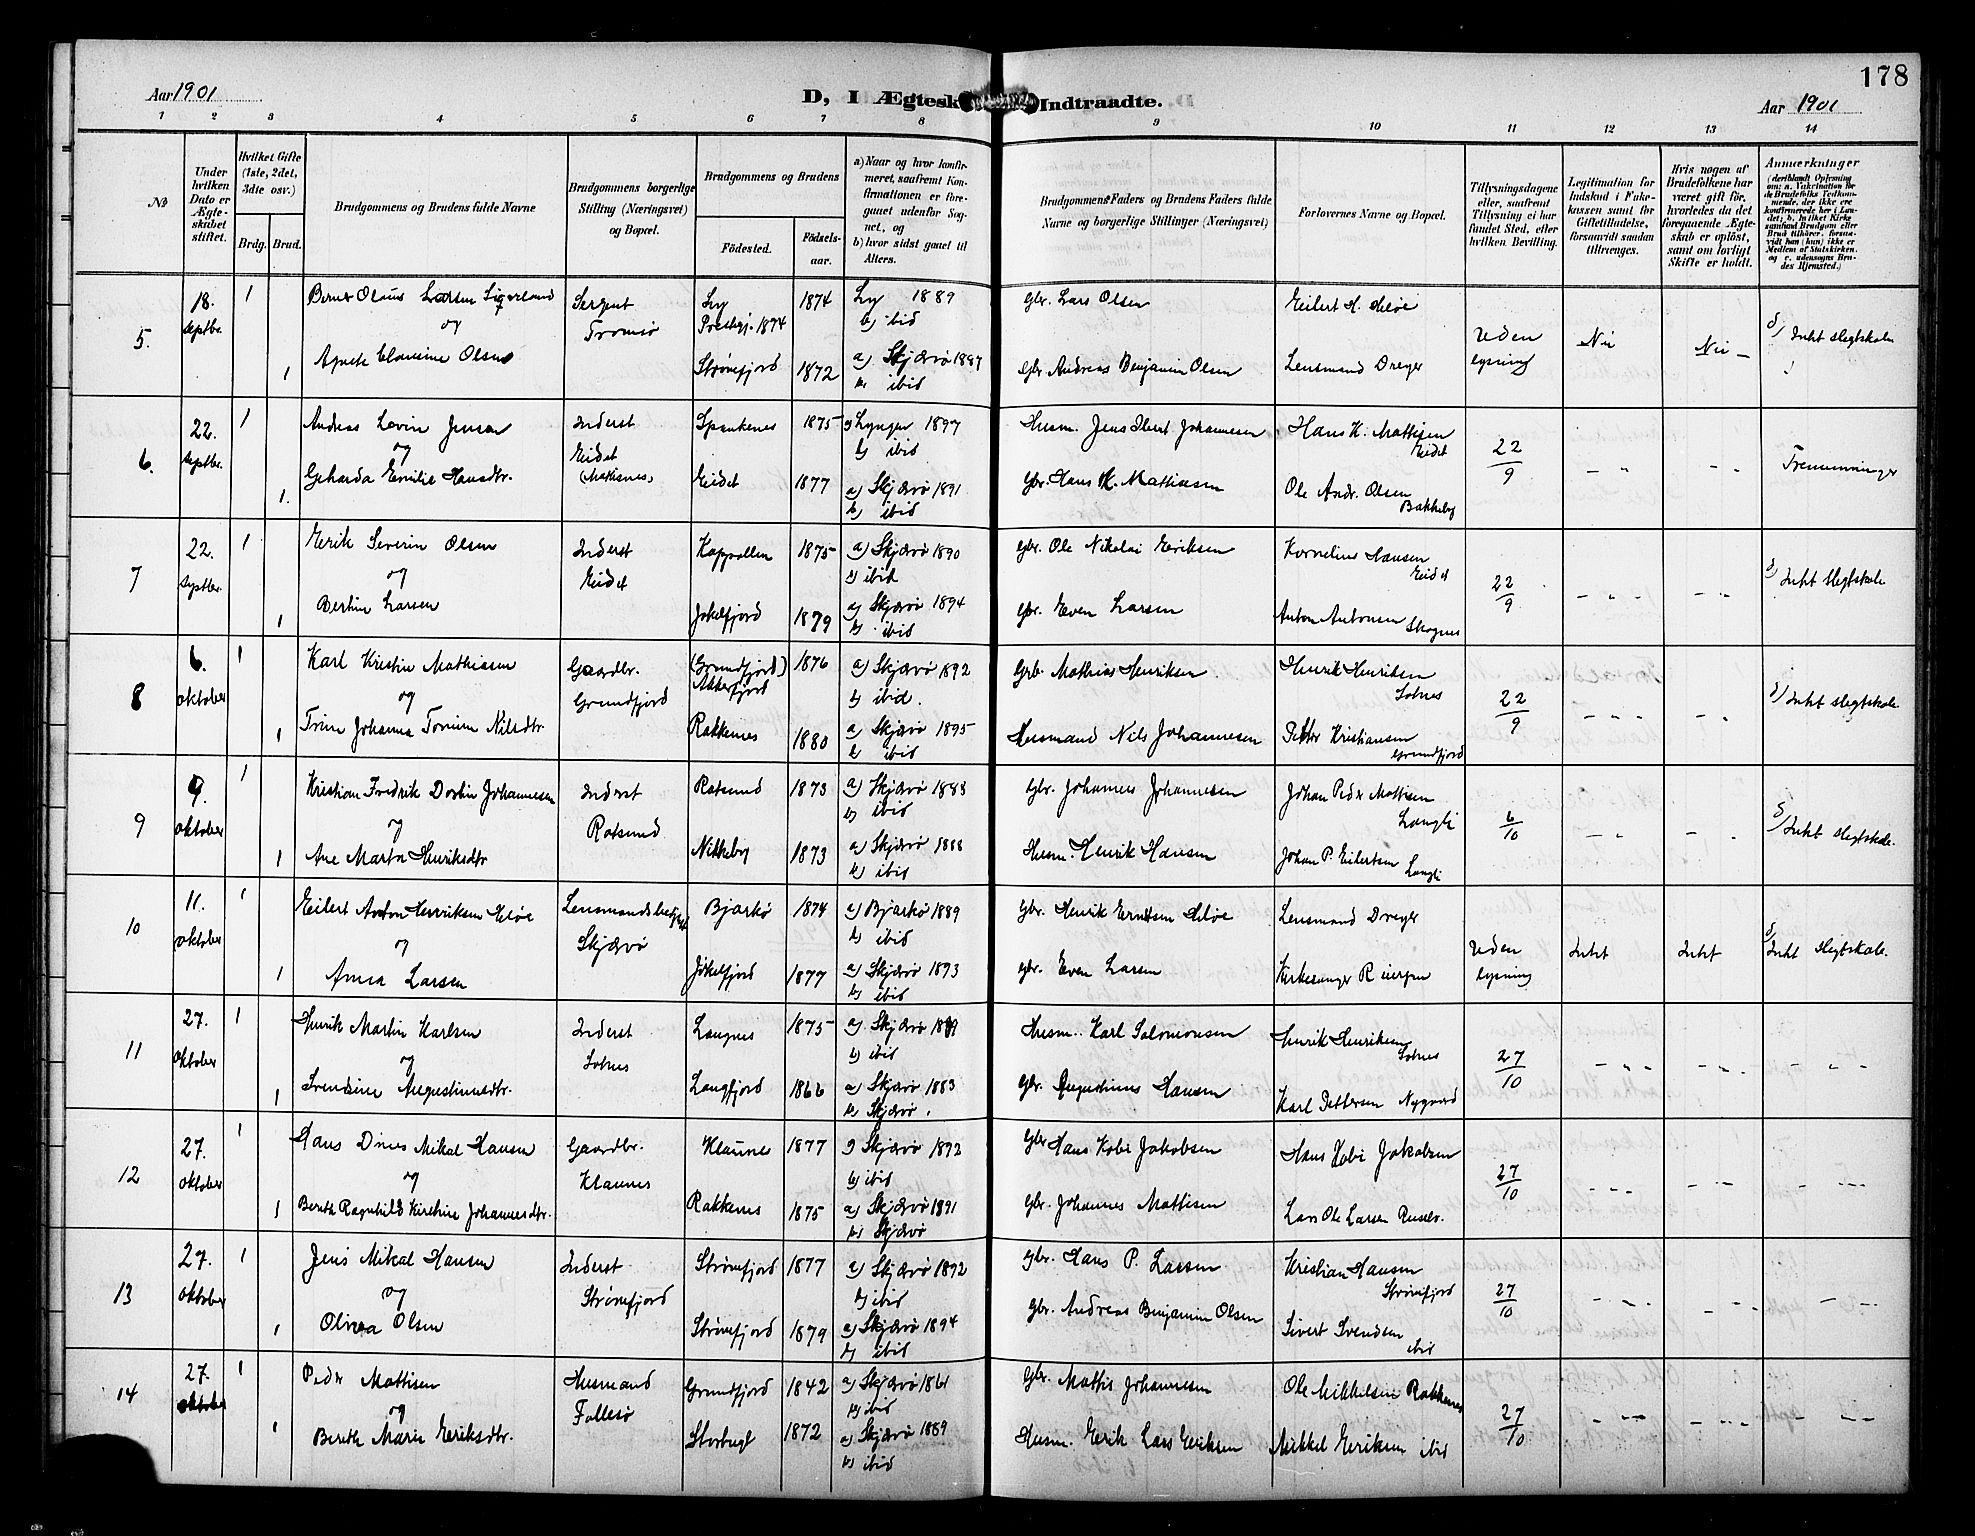 178
Aar 1901
D, I Ægtesk
Indtraadte.
Aar 1901
1 2 3 4 5 6 7 8 9 10 11 12 13 14
No
Under hvilken Dato er Ægte-skabet stiftet.
Hvilket Gifte (1ste, 2det, 3die osv.)
Brdg. Brud.
Brudgommens og Brudens fulde Navne
Brudgommens borgerlige Stilling (Næringsvei) og Bopæl.
Brudgommens og Brudens
Födested. Födsels-aar.
a) Naar og hvor konfir-meret, saafremt Kon-firmationen er fore-gaaet udenfor Sog-net, og
b) hvor sidst gaaet til Alters.
Brudgommens Faders og Brudens Faders fulde Navne og borgerlige Stillinger (Næringsvei)
Forlovernes Navne og Bopæl.
Tillysningsdagene eller, saafremt Tillysning ei har fundet Sted, efter hvilken Bevilling.
Legitimation for Indskud i Enke-kassen samt for Giftetilladelse, forsaavidt saadan tiltrænges.
Hvis nogen af Brudefolkene har været gift för, hvorledes da det foregaaende Ægte-skab er oplöst, samt om lovligt Skifte er holdt.
Anmærkninger
5. 18. septbr. 1 Olaus Larsen Sergent Tromsø 1874 1889 b) ibid Gbr. Lars Olsen Eilert H. Meløe Uden lysning Nei Nei Intet slegtskab
og
1 Olsen Strømfjord 1872 a) Skjærvø 1887 b) ibid Gbr Andreas Benjamin Olsen Lensmand Dreyer
6. 22. septbr. 1 Andreas Lovin Jensen Inderst Eidet Spaakenes 1875 a) Lyngen 1897 b) ibid Husm. Jens Johannesen Hans H. Mattisen Eidet 22/9 Tremenninger
og
1. Geharda Emilie Hansdtr. Eidet 1877 a) Skjærvø 1891 b) ibid Gbr. Hans H. Mathisen Ole Andr. Olsen Bakkeby
7 22. septbr. 1 Erik Severin Olsen Inderst Eidet 1875 a) Skjærvø 1890 b) ibid Gbr. Ole Nikolai Eriksen Kornelius Hansen Eidet 22/9 Intet slegtskab
og
1 Bertine Larsen Jøkelfjord 1879 a) Skjærvø 1894 b) ibid Gbr. Even Larsen Anton Antonsen Skognes
8 6. oktober 1 Karl Kristin Mathiasen Gaardbr. Grundfjord (Grundfjord) Akkarfjord 1876 a) Skjærvø 1892 b) ibid. Grb. Mathias Henriksen Henrik Henriksen Sotnes 22/9 Intet slegtskab
og
1 Trine Johanna Nilsdtr Rakkenes 1880 a) Skjærvø 1895 b) ibid Husmand Nils Johannesen Petter Kristiansen Grundfjord
9 9. oktober 1 Kristian Fredrik Johannesen Inderst Rotsund Rotsund 1873 a) Skjærvø 1888 b) ibid Gbr. Johannes Johannesen Johan Pedr Mattisen Langli 6/10 Intet slegtskab.
og
1 Ane Marta Henriksdtr Nikkeby 1873 a) Skjærvø 1888 b) ibid Husm. Henrik Hansen Johan P. Eilertsen Langli
10 11. oktober 1 Eilert Anton Henriksen Meløe Skjærvø Bjarkø 1874 a) Bjarkø 1889 b) ibid Gbr. Henrik Meløe Lensmand Dreyer Uden lysning Intet Intet Intet slegtskab.
og
1 Anna Larsen Jøkelfjord 1877 a) Skjærvø 1893 b) ibid Gbr. Even Larsen Kirkesanger
11 27. oktober 1 Henrik Martin Karlsen Inderst Sotnes Laugnes 1875 a) Skjærvø b) ibid Husm. Karl Salomonsen Henrik Henriksen Sotnes 27/10
og
1 Svendsine Augustinusdtr. Langfjord 1866 a) Skjærvø 1883 b) Skjærvø. Gbr. Augustinus Hansen Karl Pettersen Nygaard
12 27. oktober 1 Hans Dines Mikal Hansen Gaardbr. Klaunes Klaunes 1877 a) Skjærvø 1892 b) ibid Gbr Hans Kobi Jakobsen Hans Kobi Jakobsen 27/10
og
1 Berith Ragnhild Kirstine Johannesdtr. Rakkenes 1875 a) Skjærvø 1891 b) Skjærvø Gbr. Johannes Mattisen Lars Ole Larsen
13 27. oktober 1 Jens Mikal Hansen Inderst Strømfjord Strømfjord 1877 a) Skjærvø 1892 b) ibid Gbr. Hans P. Larsen Kristian Hansen Strømfjord 27/10
og
1 Olivia Olsen Strømfjord 1879 a) Skjærvø 1894 b) ibid Gbr. Andreas Benjamin Olsen Sivert Svendsen ibid
14 27. oktober 1 Peder Mattisen Husmand Follesø Grundfjord 1842 a) Skjærvø 1861 b) ibid Gbr. Mattis Johannesen Ole Mikkelsen Rakkenes 27/10
og
1 Berith Marie Eriksdtr. Storbugt 1872 a) Skjærvø 1889 b) ibid Husm. Erik Lars Eriksen Mikkel Eriksen ibid